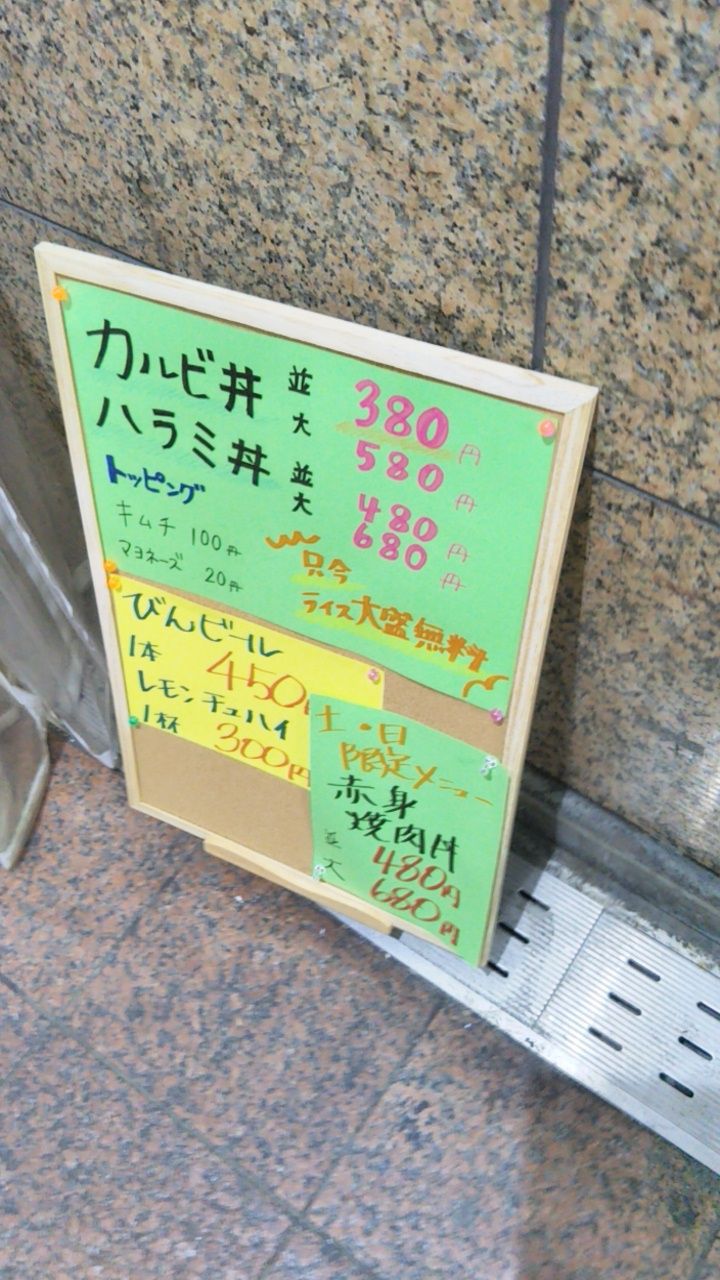 カルビ丼 並 380円
大 580円
ハラミ丼 並 480円
大 680円
トッピング
キムチ 100円
マヨネーズ 20円
只今
ライス大盛無料
びんビール
1本 450円
レモンチュハイ
1杯 300円
土・日
限定メニュー
赤身
焼肉丼
並 480円
大 680円